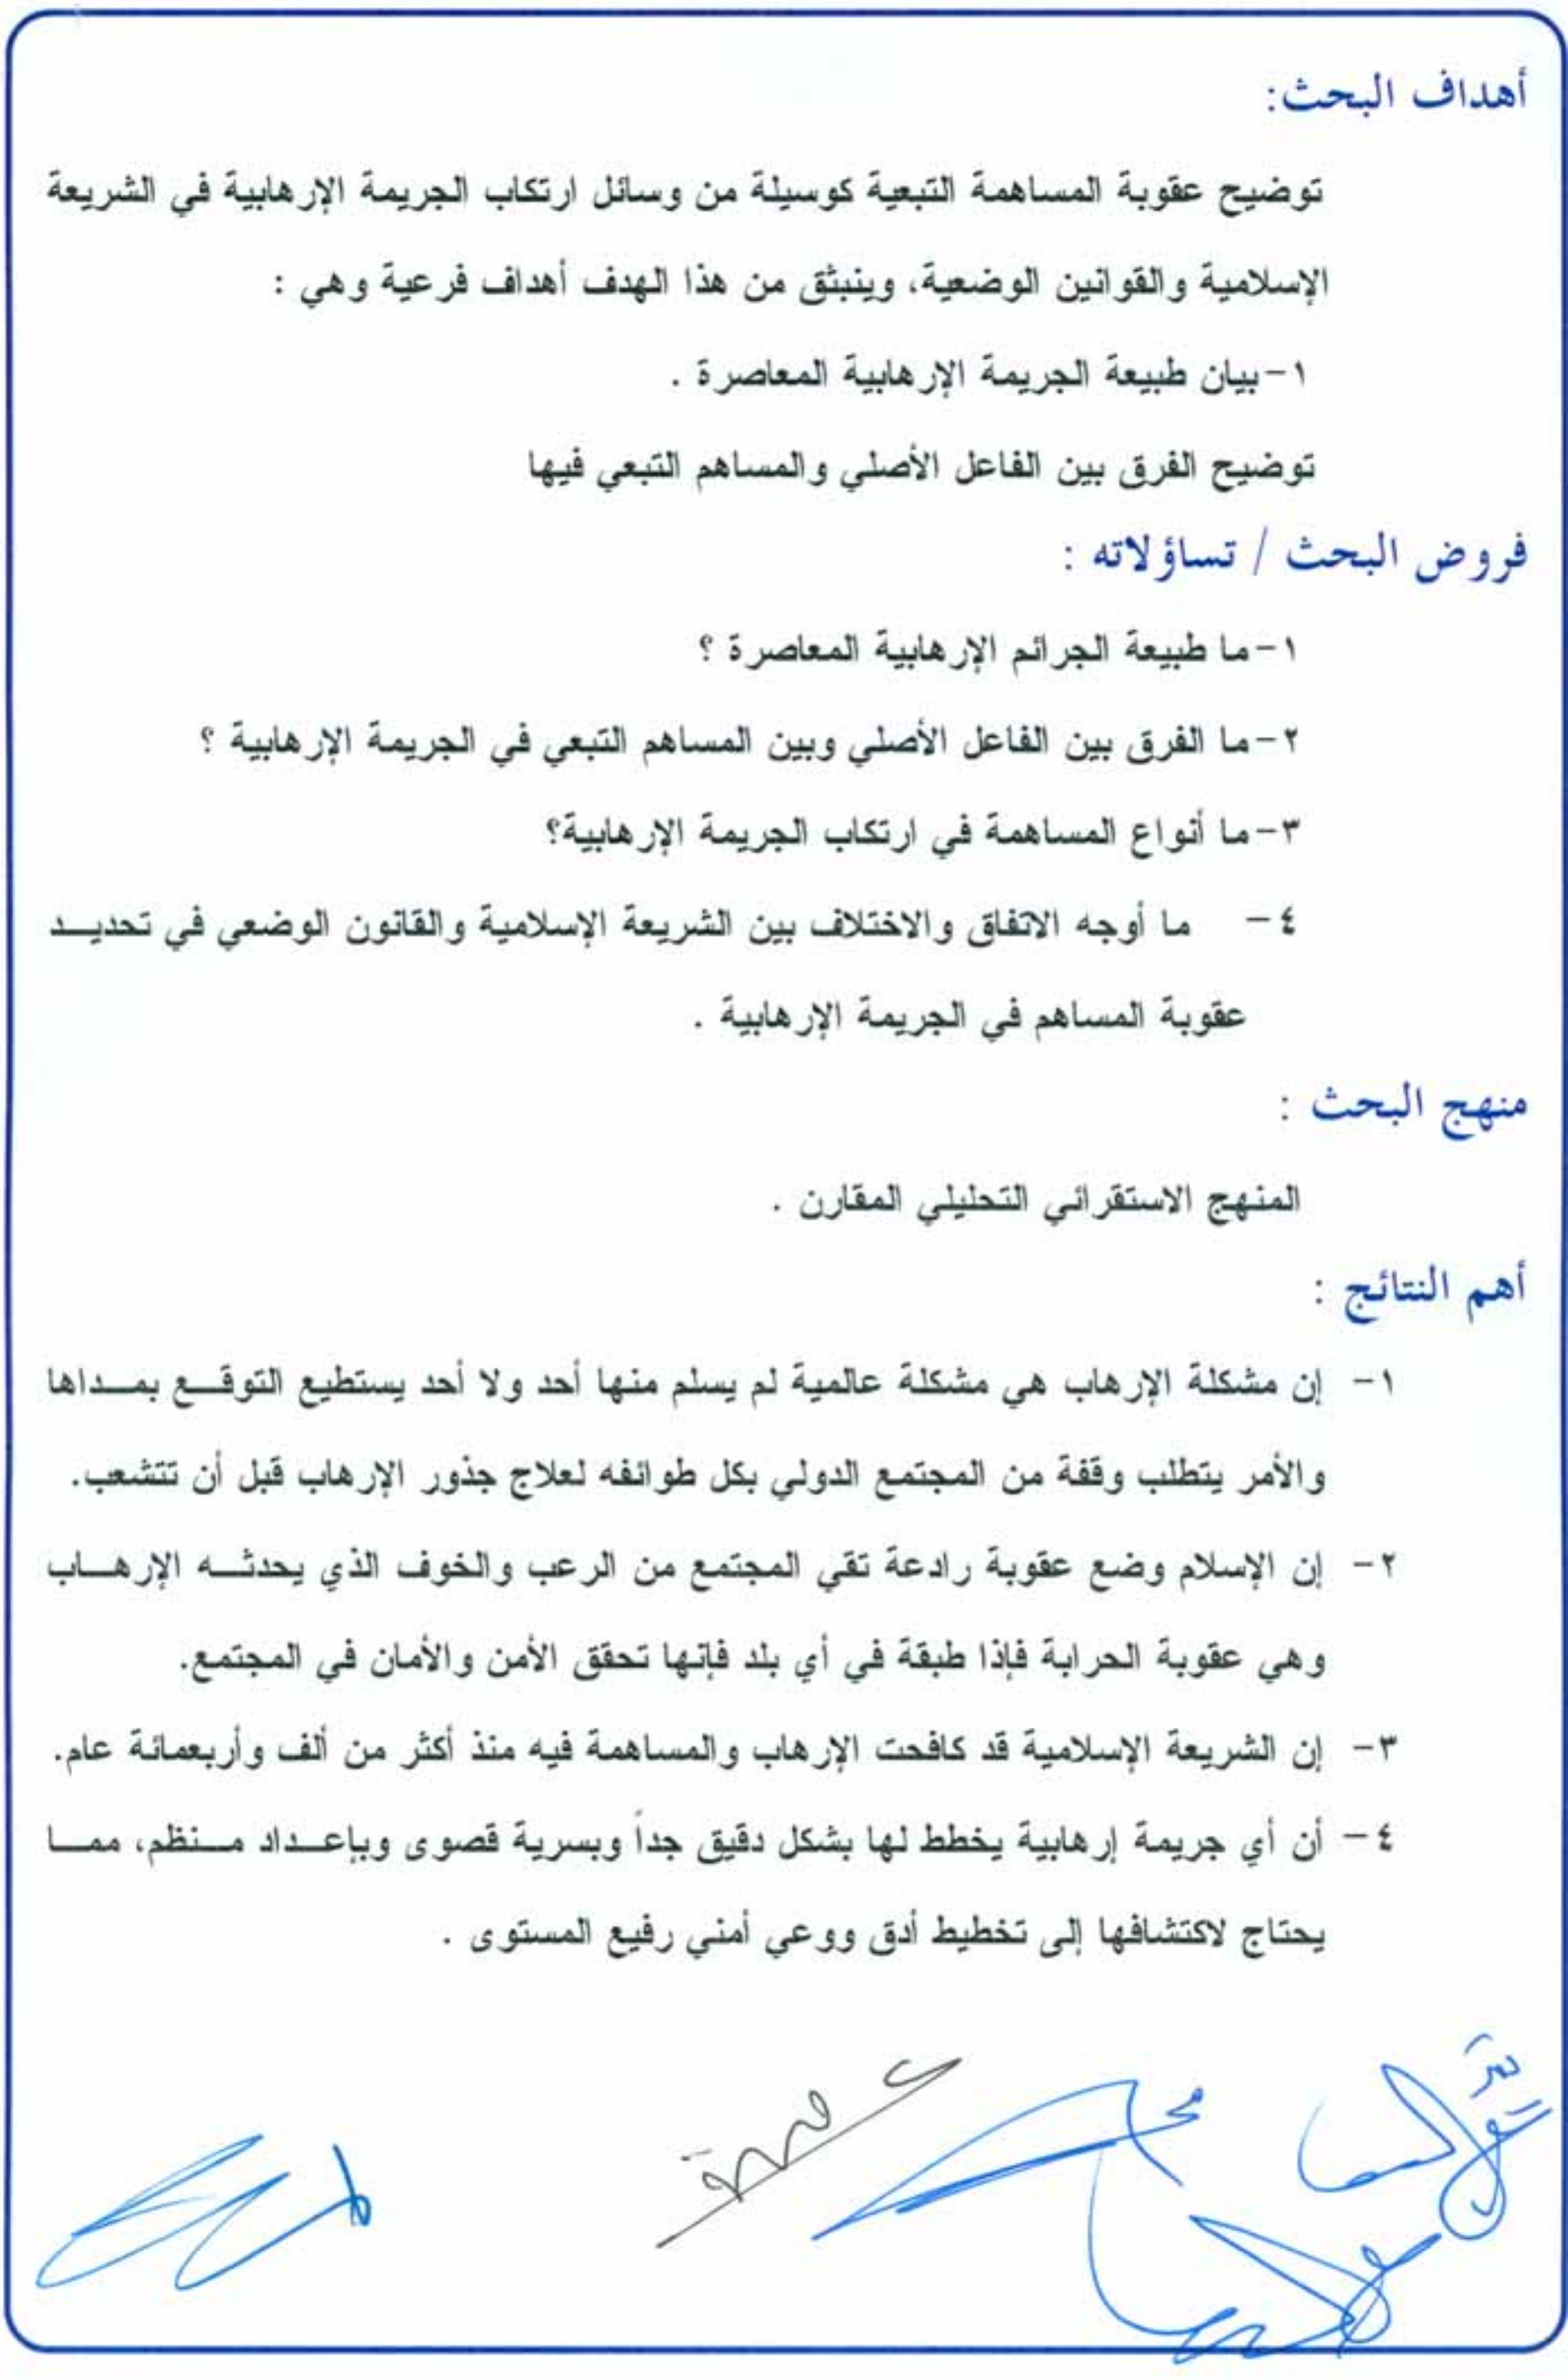 أهداف البحث:
توضيح عقوبة المساهمة التبعية كوسيلة من وسائل ارتكاب الجريمة الإرهابية في الشريعة
الإسلامية والقوانين الوضعية، وينبثق من هذا الهدف أهداف فرعية وهي :
١-بيان طبيعة الجريمة الإرهابية المعاصرة .
توضيح الفرق بين الفاعل الأصلي والمساهم التبعي فيها
فروض البحث / تساؤلاته :
١-ما طبيعة الجرائم الإرهابية المعاصرة ؟
٢-ما الفرق بين الفاعل الأصلي وبين المساهم التبعي في الجريمة الإرهابية ؟
٣-ما أنواع المساهمة في ارتكاب الجريمة الإرهابية؟
٤- ما أوجه الاتفاق والاختلاف بين الشريعة الإسلامية والقانون الوضعي في تحديــد
عقوبة المساهم في الجريمة الإرهابية .
منهج البحث :
المنهج الاستقرائي التحليلي المقارن .
أهم النتائج :
١- إن مشكلة الإرهاب هي مشكلة عالمية لم يسلم منها أحد ولا أحد يستطيع التوقــع بمــداها
والأمر يتطلب وقفة من المجتمع الدولي بكل طوائفه لعلاج جذور الإرهاب قبل أن تتشعب.
٢- إن الإسلام وضع عقوبة رادعة تقي المجتمع من الرعب والخوف الذي يحدثــه الإرهــاب
وهي عقوبة الحرابة فإذا طبقة في أي بلد فإنها تحقق الأمن والأمان في المجتمع.
٣- إن الشريعة الإسلامية قد كافحت الإرهاب والمساهمة فيه منذ أكثر من ألف وأربعمائة عام.
٤- أن أي جريمة إرهابية يخطط لها بشكل دقيق جداً وبسرية قصوى وبإعــداد مــنظم، ممــا
يحتاج لاكتشافها إلى تخطيط أدق ووعي أمني رفيع المستوى .